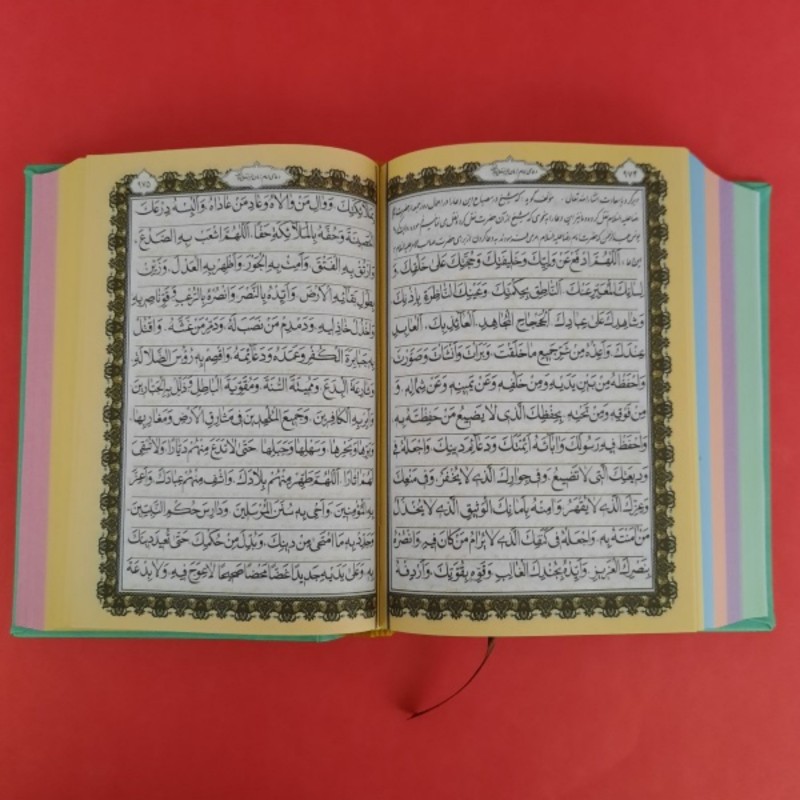 ۹۷۴
اَللّهُمَّ ادْفَعْ عَنْ وَلِیِّكَ وَخَلیفَتِكَ وَحُجَّتِكَ عَلیٰ خَلْقِكَ وَ
لِسانِكَ الْمُعَبِّرِ عَنْكَ النّاطِقِ بِحِکْمَتِكَ وَعَیْنِكَ النّاظِرَةِ بِاِذْنِكَ
وَشاهِدِكَ عَلیٰ عِبادِكَ الْجَحْجاحِ الْمُجاهِدِ الْعائِذِ بِكَ الْعابِدِ
عِنْدَكَ وَاَعِذْهُ مِنْ شَرِّ جَمیعِ ما خَلَقْتَ وَبَرَأْتَ وَاَنْشَأْتَ وَصَوَّرْتَ
وَاحْفَظْهُ مِنْ بَیْنِ یَدَیْهِ وَمِنْ خَلْفِهِ وَعَنْ یَمینِهِ وَعَنْ شِمالِهِ وَ
مِنْ فَوْقِهِ وَمِنْ تَحْتِهِ بِحِفْظِكَ الَّذی لا یَضیعُ مَنْ حَفِظْتَهُ بِهِ
وَاحْفَظْ فیهِ رَسُولَكَ وَاٰبائَهُ اَئِمَّتَكَ وَدَعآئِمَ دینِكَ وَاجْعَلْهُ فی
وَدیعَتِكَ الَّتی لا تَضیعُ وَفی جِوارِكَ الَّذی لا یُخْفَرُ وَفی مَنْعِكَ
وَعِزِّكَ الَّذی لا یُقْهَرُ وَاٰمِنْهُ بِاَمانِكَ الْوَثیقِ الَّذی لا یُخْذَلُ
مَنْ اٰمَنْتَهُ بِهِ وَاجْعَلْهُ فی كَنَفِكَ الَّذی لا یُرامُ مَنْ كانَ فیهِ وَانْصُرْهُ
بِنَصْرِكَ الْعَزیزِ وَاَیِّدْهُ بِجُنْدِكَ الْغالِبِ وَقَوِّهِ بِقُوَّتِكَ وَاَرْدِفْهُ
۹۷۵
بِمَلآئِكَتِكَ وَوالِ مَنْ والاهُ وَعادِ مَنْ عاداهُ وَاَلْبِسْهُ دِرْعَكَ
الْحَصینَةَ وَحُفَّهُ بِالْمَلآئِكَةِ حَفّاً اَللّهُمَّ اشْعَبْ بِهِ الصَّدْعَ
وَارْتُقْ بِهِ الْفَتْقَ وَاَمِتْ بِهِ الْجَوْرَ وَاَظْهِرْ بِهِ الْعَدْلَ وَزَیِّنْ
بِطُولِ بَقآئِهِ الْاَرْضَ وَاَیِّدْهُ بِالنَّصْرِ وَانْصُرْهُ بِالرُّعْبِ وَقَوِّ ناصِریهِ
وَاخْذُلْ خاذِلیهِ وَدَمْدِمْ مَنْ نَصَبَ لَهُ وَدَمِّرْ مَنْ غَشَّهُ وَاقْتُلْ
بِهِ جَبابِرَةَ الْكُفْرِ وَعَمَدَهُ وَدَعآئِمَهُ وَاقْصِمْ بِهِ رُؤُسَ الضَّلالَةِ
وَشارِعَةَ الْبِدَعِ وَمُمیتَةَ السُّنَّةِ وَمُقَوِّیَةَ الْباطِلِ وَذَلِّلْ بِهِ الْجَبّارینَ
وَاَبِرْ بِهِ الْكافِرینَ وَجَمیعَ الْمُلْحِدینَ فی مَشارِقِ الْاَرْضِ وَمَغارِبِها
وَبَرِّها وَبَحْرِها وَسَهْلِها وَجَبَلِها حَتّی لا تَدَعَ مِنْهُمْ دَیّاراً وَلا تُبْقِیَ
لَهُمْ اٰثاراً اَللّهُمَّ طَهِّرْ مِنْهُمْ بِلادَكَ وَاشْفِ مِنْهُمْ عِبادَكَ وَاَعِزَّ
بِهِ الْمُؤْمِنینَ وَاَحْیِ بِهِ سُنَنَ الْمُرْسَلینَ وَدارِسَ حُكْمِ النَّبِیّینَ
وَجَدِّدْ بِهِ مَا امْتَحیٰ مِنْ دینِكَ وَبُدِّلَ مِنْ حُكْمِكَ حَتّی تُعیدَ دینَكَ
بِهِ وَعَلیٰ یَدَیْهِ جَدیداً غَضّاً مَحْضاً صَحیحاً لا عِوَجَ فیهِ وَلا بِدْعَةَ